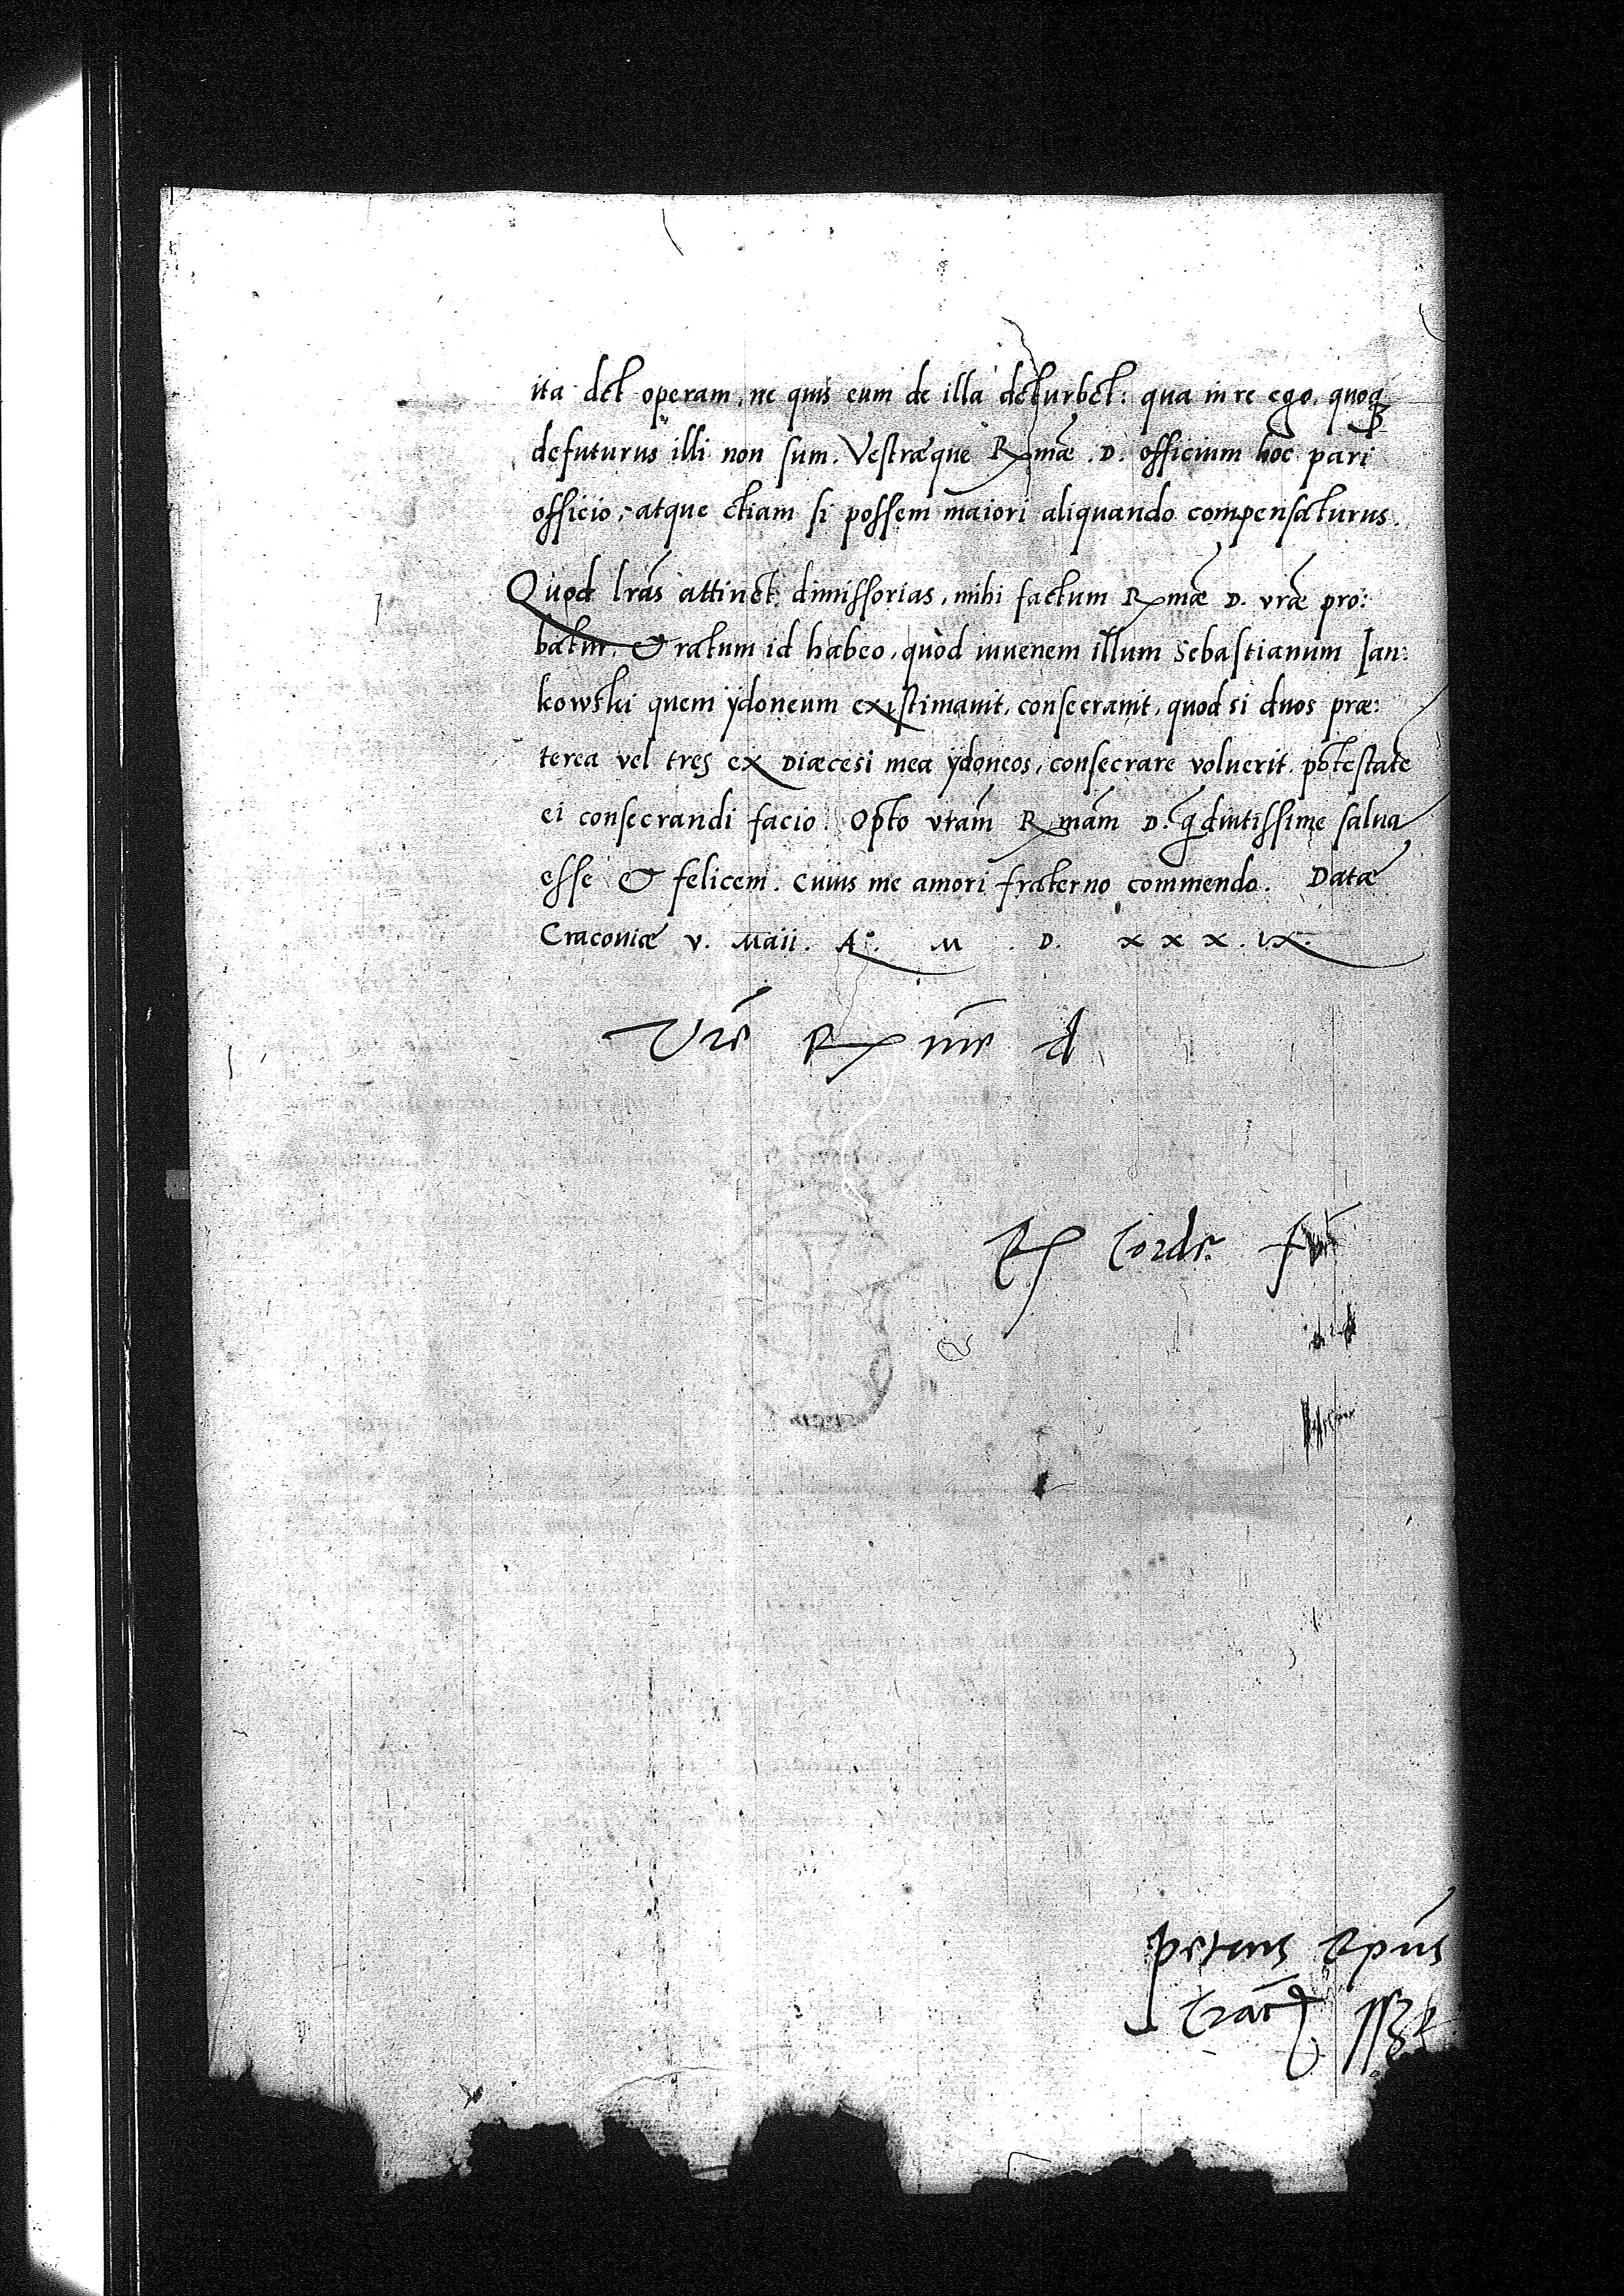 ita det operam, ne quis eum de illa deturbet: qua in re ego quoqꝫ
defuturus illi non sum. Vestræque Rmæ .D. officium hoc pari
officio, atque etiam si possem maiori aliquando compensaturus.
Quod lrãs attinet dimissorias, mihi factum Rmæ D. vræ pro:
batur, & ratum id habeo, quòd iuuenem illum Sebastianum Jan:
kowski quem ydoneum existimauit, consecrauit, quod si duos præ:
terea vel tres ex Diæcesi mea ydoneos, consecrare voluerit potestatẽ
ei consecrandi facio. Opto vrãm Rmãm D. q̃diutissime saluã
esse & felicem. Cuius me amori fraterno commendo. Datæ
Cracouiæ v. Maii. A°. M . D. xxx.ix.
Vrẽ Rme d
Petrus Epũs
Crac